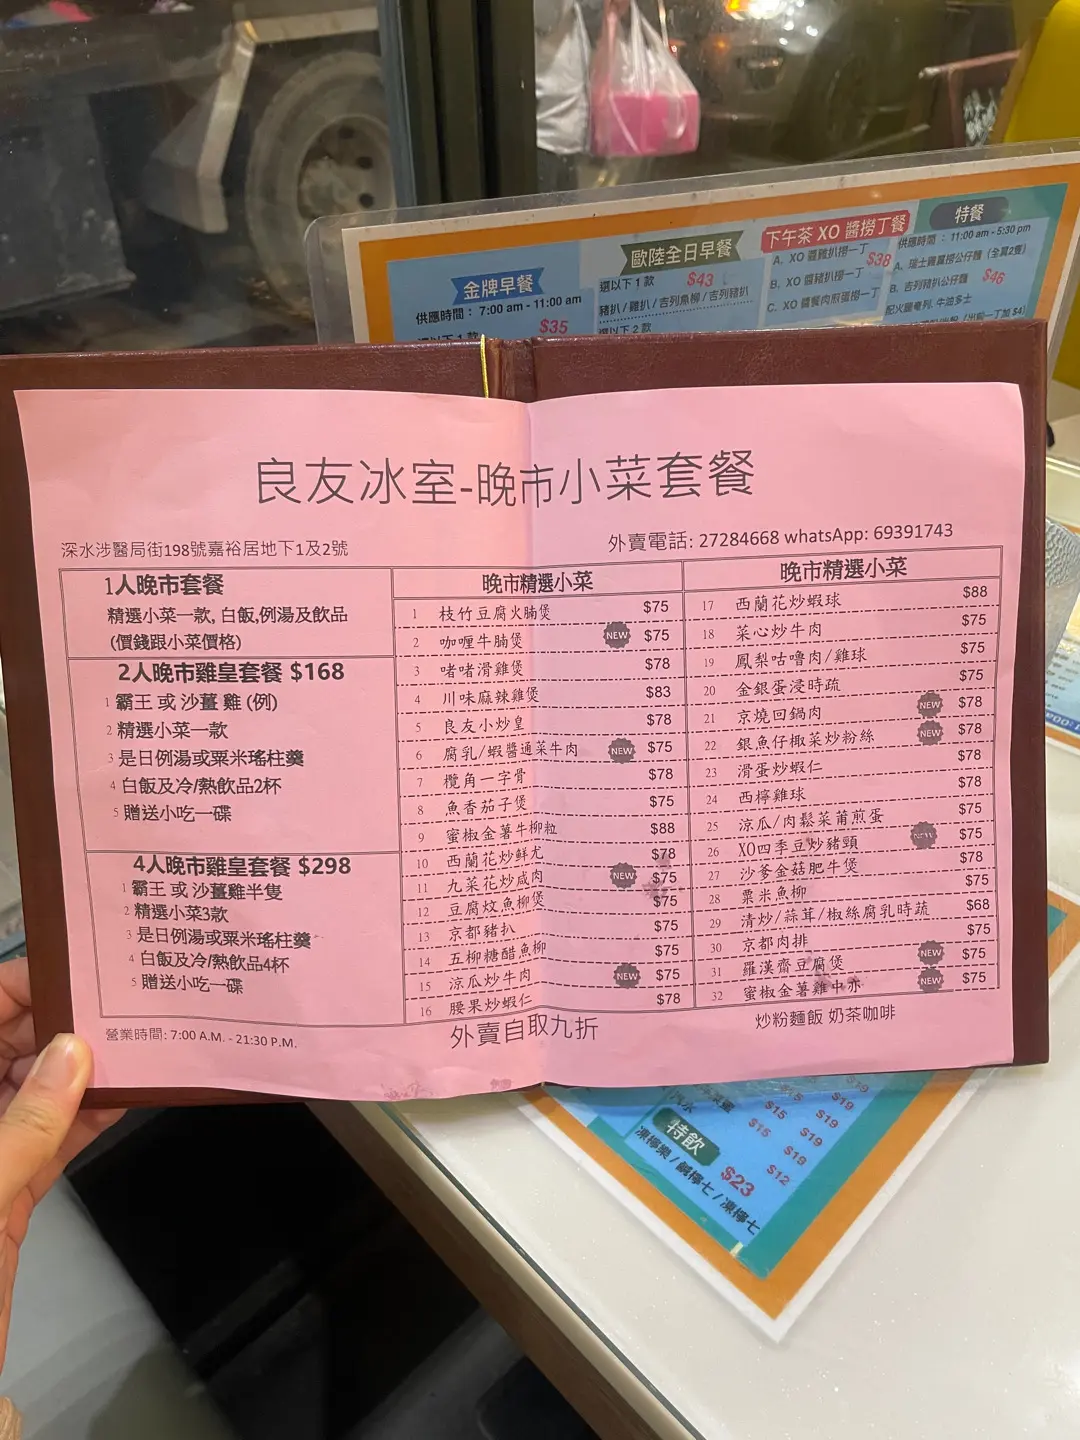 金牌早餐
供應時間：7:00 am - 11:00 am
$35
歐陸全日早餐
選以下1款 $43
豬扒/雞扒/吉列魚柳/吉列豬扒
選以下2款
下午茶 XO 醬撈丁餐
A. XO 醬雞扒撈一丁 $38
B. XO 醬豬扒撈一丁
C. XO 醬餐肉煎蛋撈一丁
特餐
供應時間：11:00 am - 5:30 pm
A. 瑞士雞翼撈公仔麵（全翼2隻）
B. 吉列豬扒公仔麵 $46
良友冰室-晚市小菜套餐
深水涉醫局街198號嘉裕居地下1及2號
外賣電話: 27284668 whatsApp: 69391743
1人晚市套餐
精選小菜一款, 白飯,例湯及飲品
(價錢跟小菜價格)
2人晚市雞皇套餐 $168
1 霸王 或 沙薑 雞 (例)
2 精選小菜一款
3 是日例湯或粟米瑤柱羹
4 白飯及冷/熱飲品2杯
5 贈送小吃一碟
4人晚市雞皇套餐 $298
1 霸王 或 沙薑雞半隻
2 精選小菜3款
3 是日例湯或粟米瑤柱羹
4 白飯及冷/熱飲品4杯
5 贈送小吃一碟
晚市精選小菜
1 枝竹豆腐火腩煲 $75
2 咖喱牛腩煲 NEW $75
3 啫啫滑雞煲 $78
4 川味麻辣雞煲 $83
5 良友小炒皇 $78
6 腐乳/蝦醬通菜牛肉 NEW $75
7 欖角一字骨 $78
8 魚香茄子煲 $75
9 蜜椒金薯牛柳粒 $88
10 西蘭花炒鮮尤 $78
11 九菜花炒咸肉 NEW $75
12 豆腐炆魚柳煲 $75
13 京都豬扒 $75
14 五柳糖醋魚柳 $75
15 涼瓜炒牛肉 NEW $75
16 腰果炒蝦仁 $78
晚市精選小菜
17 西蘭花炒蝦球 $88
18 菜心炒牛肉 $75
19 鳳梨咕嚕肉/雞球 $75
20 金銀蛋浸時疏 $75
21 京燒回鍋肉 NEW $78
22 銀魚仔椰菜炒粉絲 NEW $78
23 滑蛋炒蝦仁 $78
24 西檸雞球 $78
25 涼瓜/肉鬆菜莆煎蛋 $75
26 XO四季豆炒豬頸 NEW $75
27 沙爹金菇肥牛煲 $78
28 粟米魚柳 $75
29 清炒/蒜茸/椒絲腐乳時蔬 $68
30 京都肉排 $75
31 羅漢齋豆腐煲 NEW $75
32 蜜椒金薯雞中亦 NEW $75
營業時間: 7:00 A.M. - 21:30 P.M.
外賣自取九折
炒粉麵飯 奶茶咖啡
汽水
$15 $19
$15 $19
$19
$12
特飲
凍檸樂/鹹檸七/凍檸七
$23